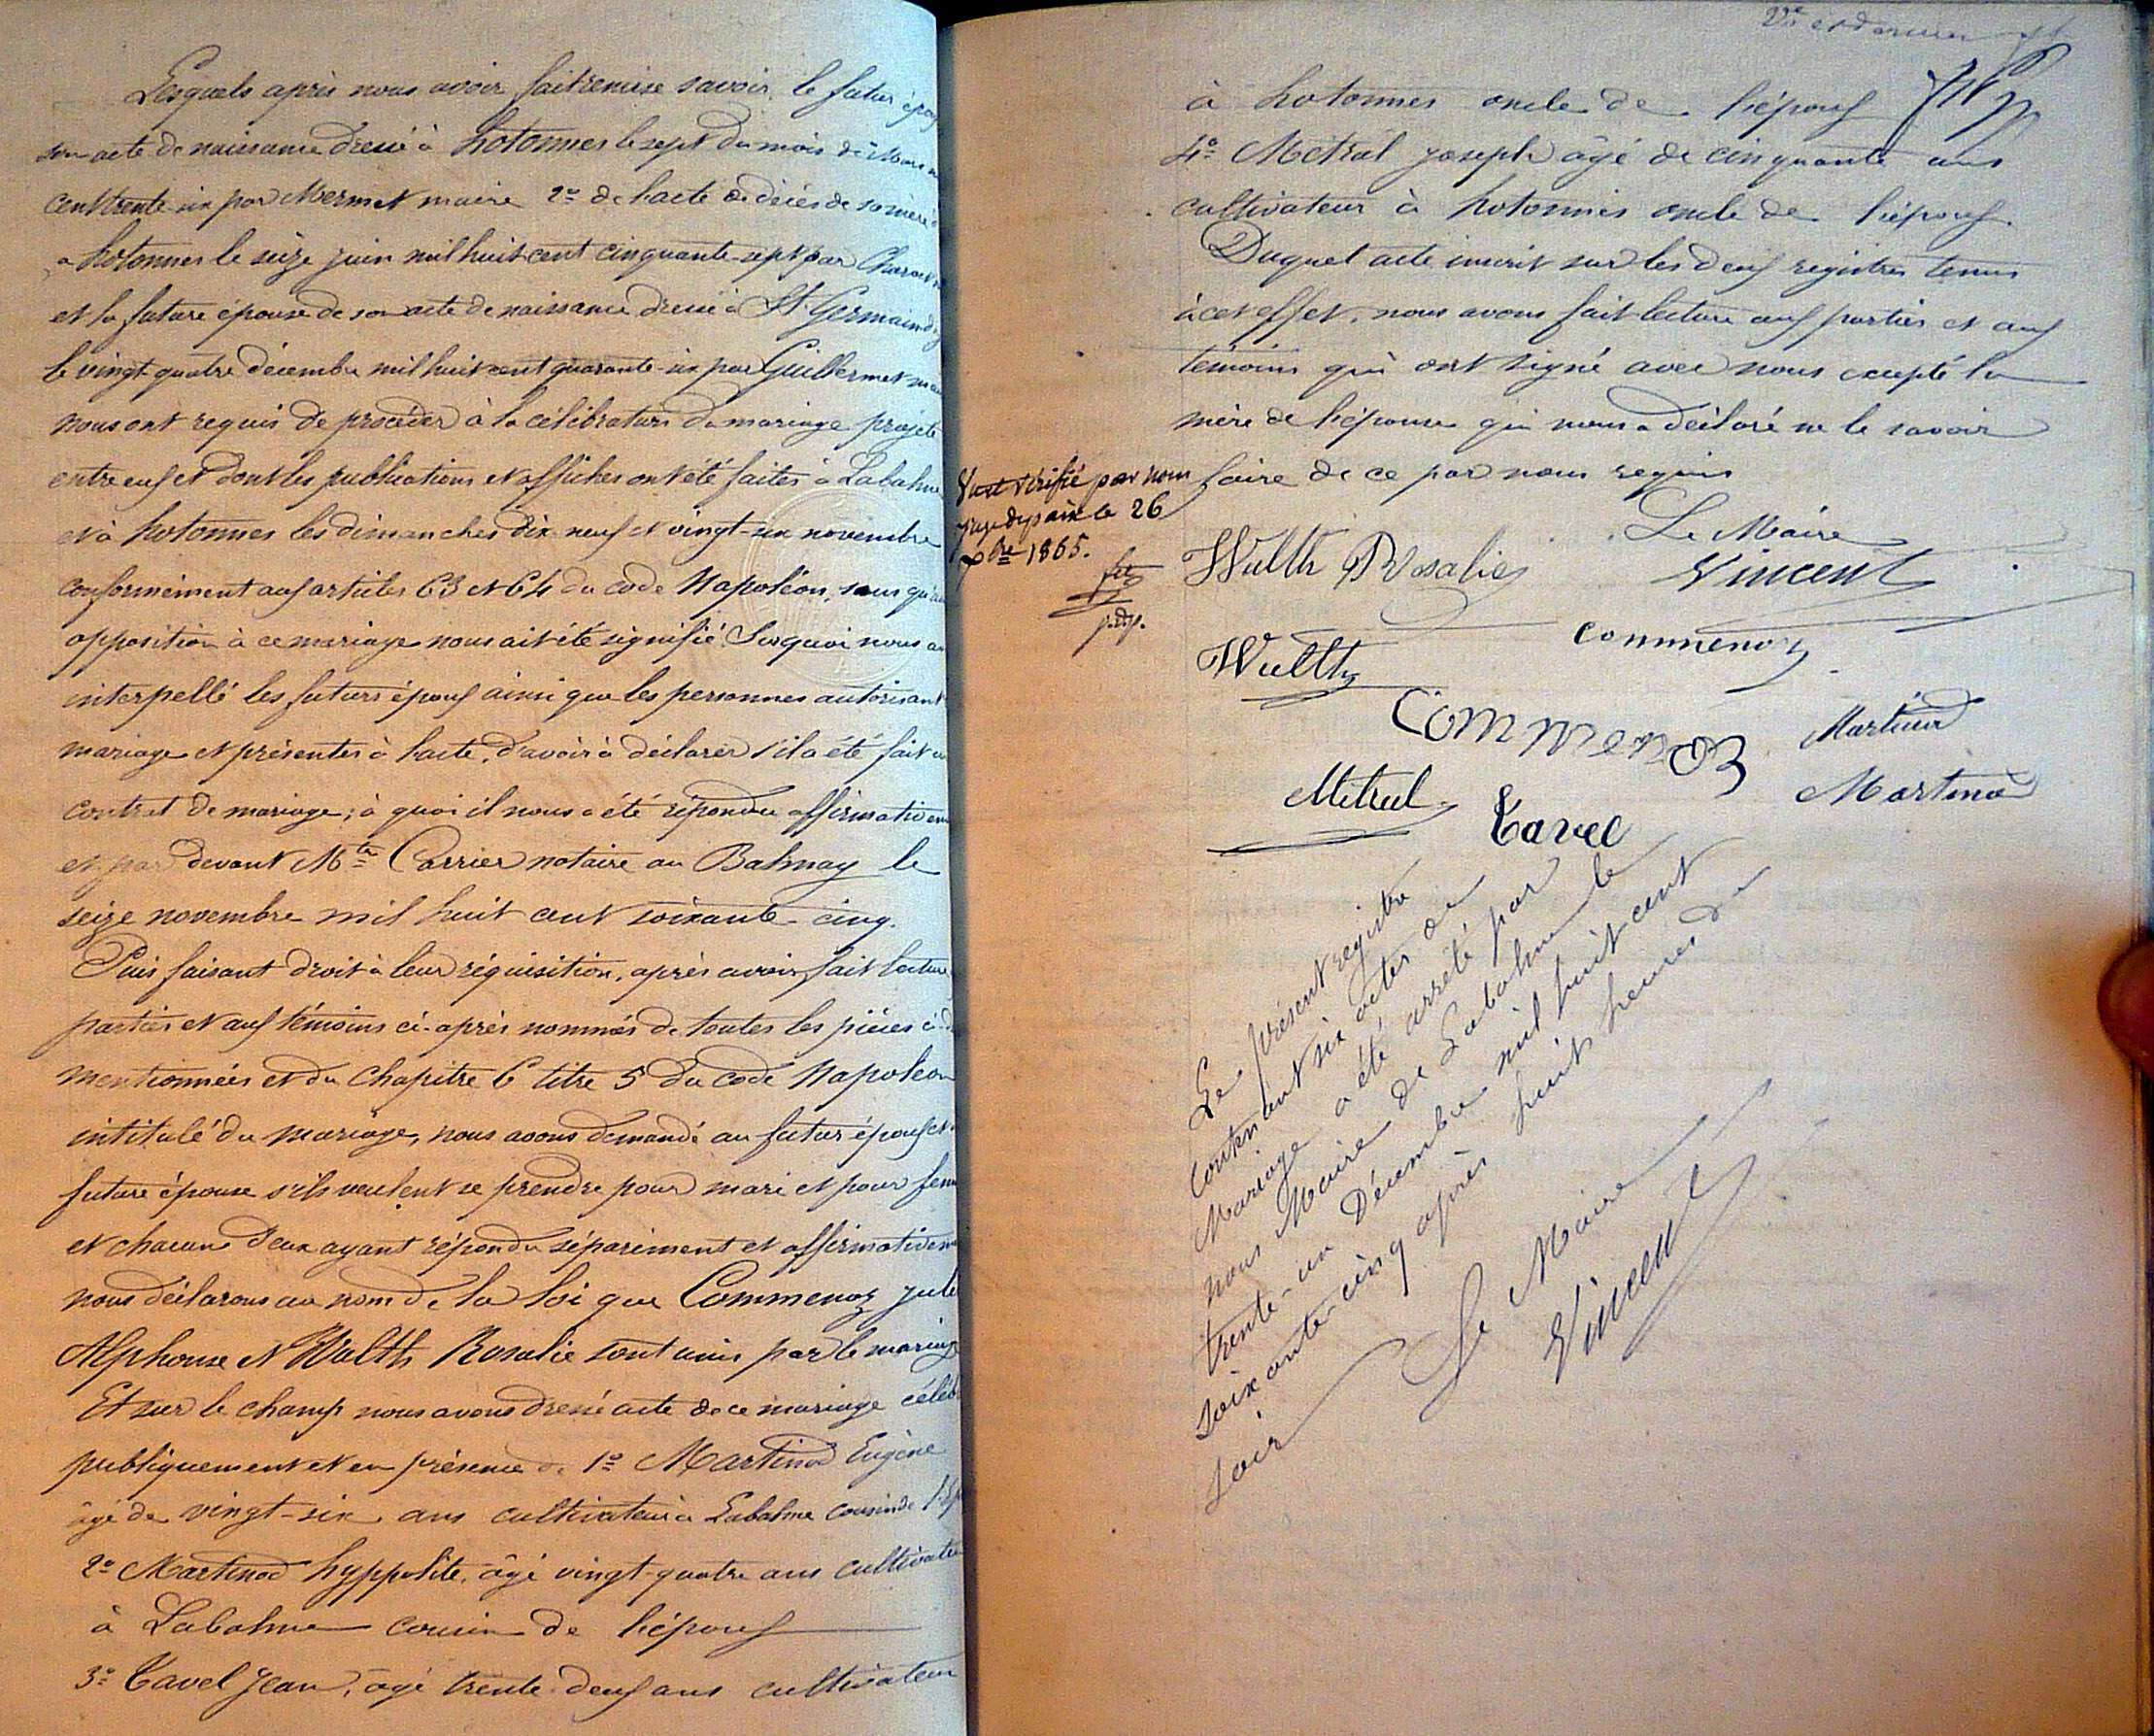 Lesquels après nous avoir fait remise savoir le futur époux
son acte de naissance dressé à hotonnes le sept du mois de
cent trente six par Mermet maire 2º de l'acte de décès de sa mère
à hotonnes le seize juin mil huit cent cinquante-sept par
et la future épouse de son acte de naissance dressé à St. Germain
le vingt quatre décembre mil huit cent quarante-six par Guillermet
nous ont requis de procéder à la célébration du mariage projeté
entre eux et dont les publications et affiches ont été faites à Labalme
et à hotonnes les dimanches dix neuf et vingt-six novembre
conformément aux articles 63 et 64 du code Napoléon, sans qu'
opposition à ce mariage nous ait été signifié. Surquoi nous
interpellé les futurs époux ainsi que les personnes autorisant
mariage et présentes à l'acte, d'avoir à déclarer s'il a été fait
contrat de mariage; à quoi il nous a été répondu affirmativem
et par devant Mtre Carrier notaire au Balmay le
seize novembre mil huit cent soixante-cinq.
Puis faisant droit à leur réquisition, après avoir fait lecture
parties et aux témoins ci-après nommés de toutes les pièces ci-d
mentionnées et du Chapitre 6 titre 5 du code Napoléon
intitulé du mariage, nous avons demandé au futur époux et
future épouse s'ils veulent se prendre pour mari et pour fem
et chacun d'eux ayant répondu séparément et affirmativem
nous déclarons au nom de la loi que Commenoz Jule
Alphonse et Walth Rosalie sont unis par le mariag
Et sur le champ nous avons dressé acte de ce mariage céléb
publiquement et en présence de 1º Martinod Eugène
âgé de vingt-six ans cultivateur à Labalme cousin de l'ép
2º Martinod hyppolite, âgé vingt-quatre ans cultivate
à Labalme cousin de l'époux
3º Tavel Jean, âgé trente-deux ans cultivateur
à hotonnes oncle de l'époux
4º Métral joseph âgé de cinquante ans
cultivateur à hotonnes oncle de l'époux.
Duquel acte inscrit sur les deux registres tenus
à cet effet, nous avons fait lecture aux parties et aux
témoins qui ont signé avec nous excepté la
mère de l'épouse qui nous a déclaré ne le savoir
faire de ce par nous requis
Vu et vérifié par nous
juge de paix le 26
xbre 1865.
j.d.p.
Le Maire
Walth Rosalie
Vincent
Commenoz
Walth
Commenoz
Martinod
Métral
Tavel
Martinod
Le présent registre
contenant six actes de
Mariage a été arrêté par
nous Maire de Labalme le
trente-un Décembre mil huit cent
soixante-cinq après huit heures du
soir
Le Maire
Vincent